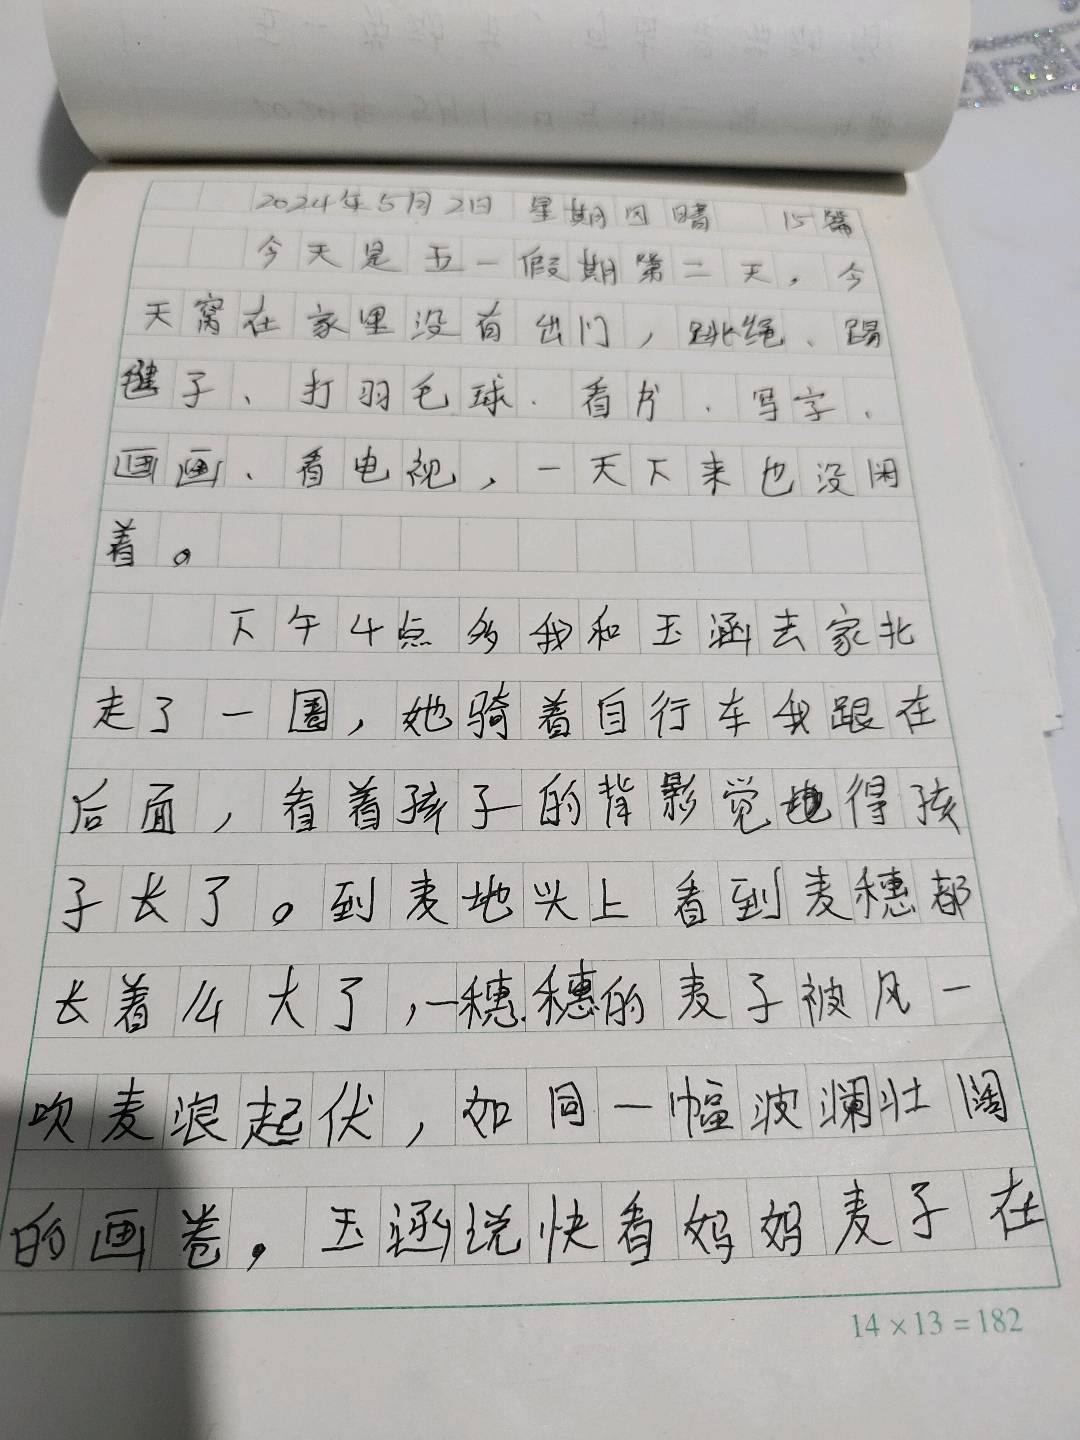 2024年5月2日 星期四 晴 15篇
今天是五一假期第二天，今
天窝在家里没有出门，跳绳、踢
毽子、打羽毛球、看书、写字、
画画、看电视，一天下来也没闲
着。
下午4点多我和玉涵去家北
走了一圈，她骑着自行车我跟在
后面，看着孩子的背影觉得孩
子长了。到麦地头上看到麦穗都
长着么大了，一穗穗的麦子被风一
吹麦浪起伏，如同一幅波澜壮阔
的画卷，玉涵说快看妈妈麦子在
14×13=182